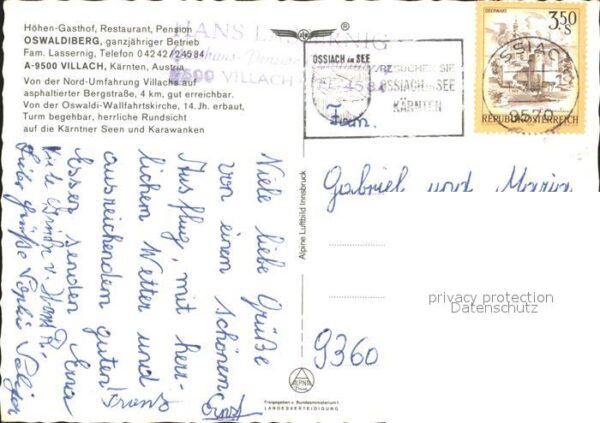 Höhen-Gasthof, Restaurant, Pension
OSWALDIBERG, ganzjähriger Betrieb
Fam. Lassernig, Telefon 04242/24584
A-9500 VILLACH, Kärnten, Austria
Von der Nord-Umfahrung Villachs auf
asphaltierter Bergstraße, 4 km, gut erreichbar.
Von der Oswaldi-Wallfahrtskirche, 14. Jh. erbaut,
Turm begehbar, herrliche Rundsicht
auf die Kärntner Seen und Karawanken
HANS LASSERNIG
Pension
9500 VILLACH
OSSIACH am SEE
BESUCHEN SIE
OSSIACH am SEE
KÄRNTEN
OSSIACH
9570
OBERWART
3,50
S
REPUBLIK ÖSTERREICH
Viele liebe Grüße
von einem schönen
Ausflug, mit herr-
lichem Wetter und
ausreichendem guten
Essen senden
Franz
Ernst
Liebe Grüße
Alpine Luftbild Innsbruck
ALPINE
Freigegeben v. Bundesministerium f.
LANDESVERTEIDIGUNG
Fam.
Gabriel und Maria
privacy protection
Datenschutz
9360